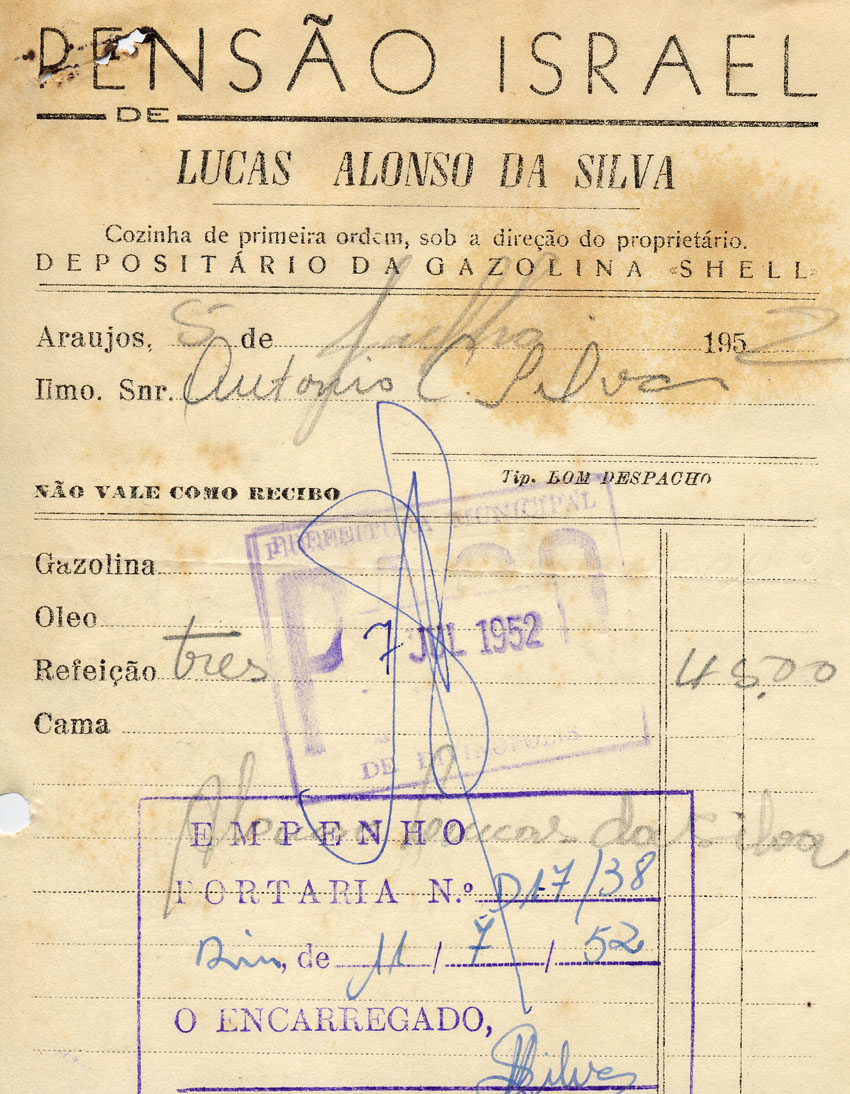 PENSÃO ISRAEL
DE
LUCAS ALONSO DA SILVA
Cozinha de primeira ordem, sob a direção do proprietário.
DEPOSITÁRIO DA GAZOLINA «SHELL»
Araujos, 5 de Julho 1952
Ilmo. Snr. Antonio C. Silva
Tip. BOM DESPACHO
NÃO VALE COMO RECIBO
PREFEITURA MUNICIPAL
PAGO
Gazolina
Oleo
7 JUL 1952
Refeição tres 45,00
Cama
DE DIVINOPOLIS
Lucas da Silva
EMPENHO
PORTARIA N.º D17/38
Div, de 11 / 7 / 52
O ENCARREGADO,
Silva